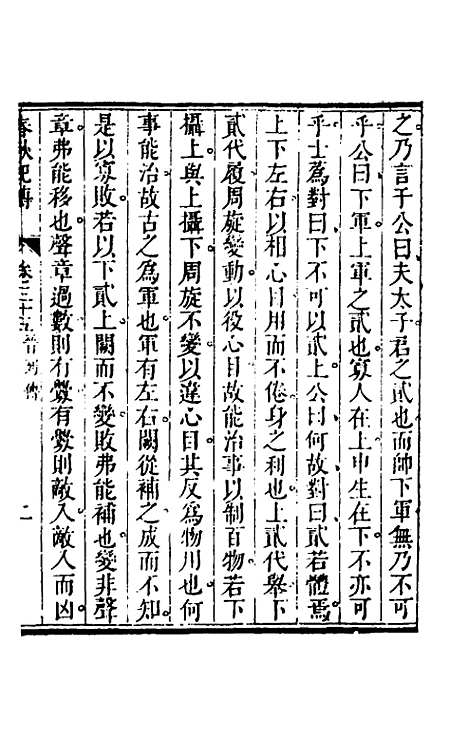 之乃言于公曰夫太子君之貳也而帥下軍無乃不可
乎公曰下軍上軍之貳也寡人在上申生在下不亦可
乎士蒍對曰下不可以貳上公曰何故對曰貳若體焉
上下左右以相心目用而不倦身之利也上貳代舉下
貳代履周旋變動以役心目故能治事以制百物若下
攝上與上攝下周旋不變以違心目其反爲物用也何
事能治故古之爲軍也軍有左右闕從補之成而不知
是以寡敗若以下貳上闕而不變敗弗能補也變非聲
章弗能移也聲章過數則有釁有釁則敵入敵入而凶
春秋紀傳 卷三十五晉列傳 二